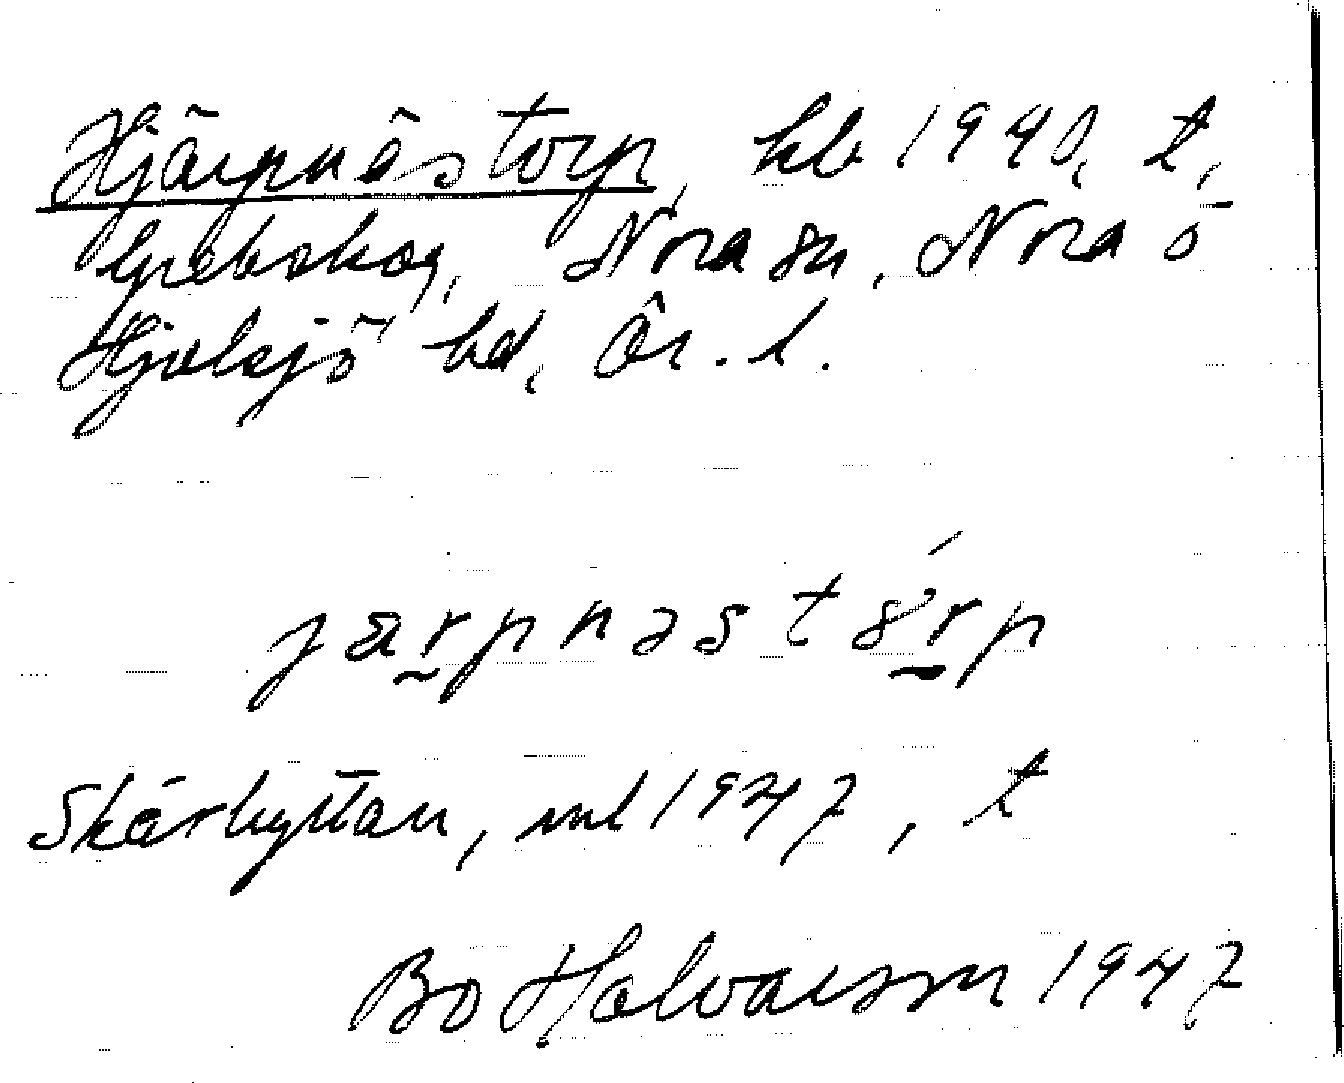 Hjärpnästorp, hb 1940, t,
Grebskog, Nora sn, Nora o
Hjulsjö hd, Ör. l.
järpnəstórp
Skärhyttan, ml 1947, t
Bo Halvarson 1947